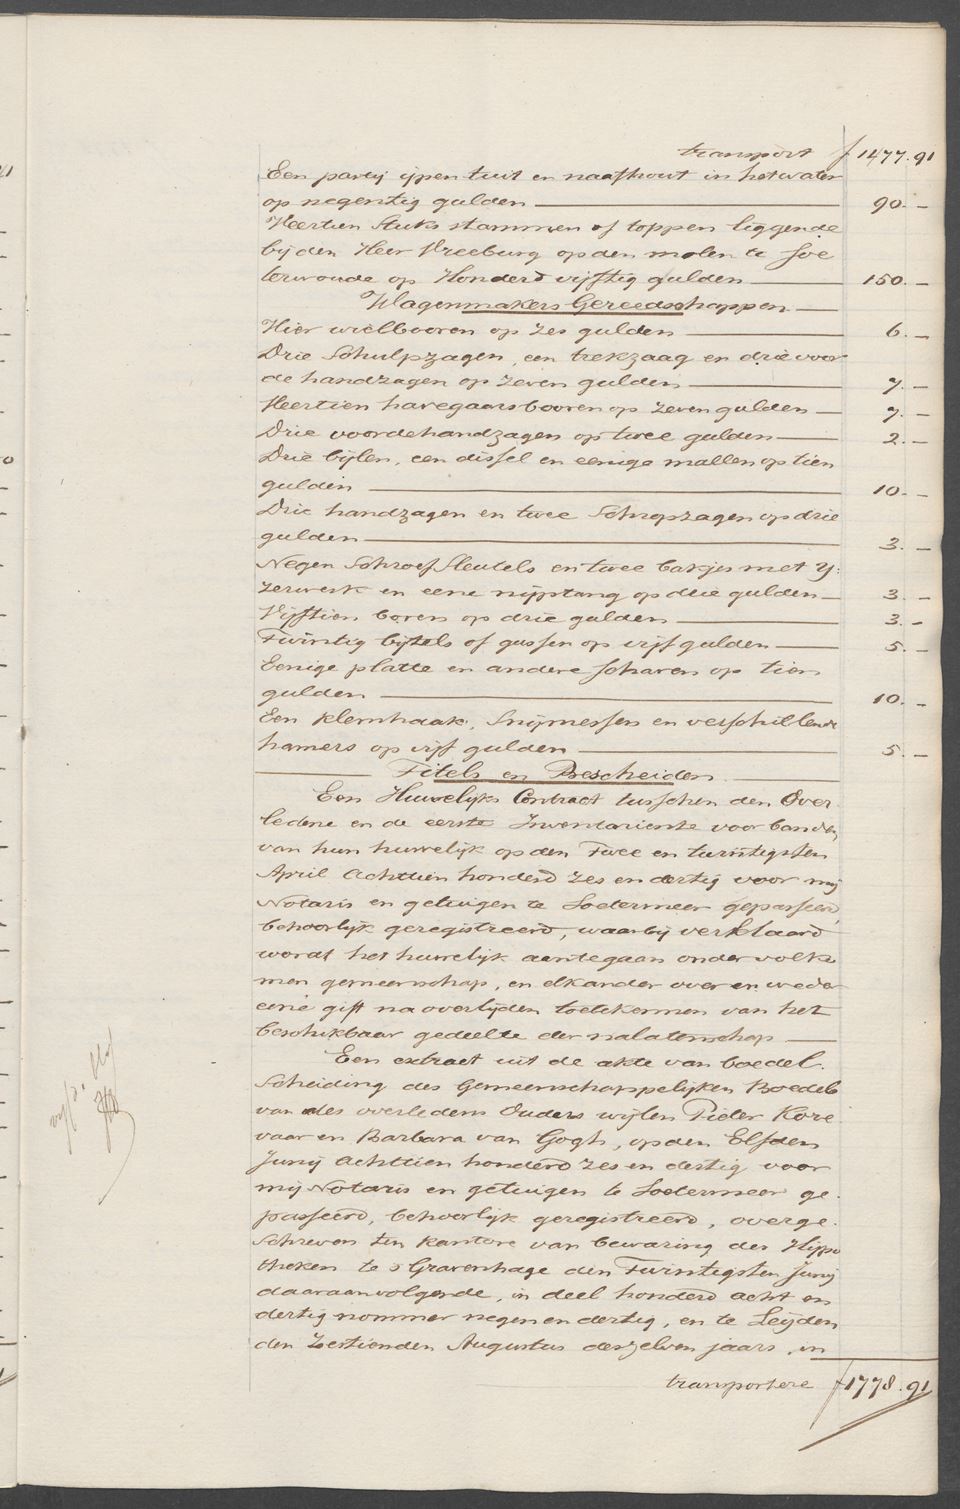 transport f 1477.91
Een partij ijpen tuit en naafhout in het water
op negentig gulden 90.-
Veertien Stuks stammen of toppen liggende
bij den Heer Vreeburg op den molen te Soe
terwoude op Honderd vijftig gulden 150.-
Wagenmakers Gereedschappen
Vier wielbooren op zes gulden 6.-
Drie Schulpzagen, een trekzaag en drie voor
de handzagen op zeven gulden 7.-
Veertien havegaarsbooren op zeven gulden 7.-
Drie voordehandzagen op twee gulden 2.-
Drie bijlen, een dissel en eenige mallen op tien
gulden 10.-
Drie handzagen en twee Schropzagen op drie
gulden 3.-
Negen Schroef Sleutels en twee bakjes met Y:
zerwerk en eene nijptang op drie gulden 3.-
Vijftien boren op drie gulden 3.-
Twintig bijtels of gussen op vijf gulden 5.-
Eenige platte en andere schaven op tien
gulden 10.-
Een klemhaak, Snijmessen en verschillende
hamers op vijf gulden 5.-
Titels en Bescheiden
Een Huwelijks Contract tusschen den Over
ledene en de eerste Inventariente voor banden
van hun huwelijk op den Twee en twintigsten
April Achttien honderd zes en dertig voor mij
Notaris en getuigen te Soetermeer gepasseerd,
behoorlijk geregistreerd, waarbij verklaard
wordt het huwelijk aantegaan onder volko
men gemeenschap, en elkander over en weder
eene gift na overlijden toetekennen van het
beschikbaar gedeelte der nalatenschap
Een extract uit de akte van boedel
Scheiding des Gemeenschappelijken Boedels
van des overledens Ouders wijlen Pieter Kore
vaar en Barbara van Gogh, op den Elfden
Junij Achttien honderd zes en dertig voor
mij Notaris en getuigen te Soetermeer ge
passeerd, behoorlijk geregistreerd, overge
schreven ten kantore van bewaring der Hypo
theken te s Gravenhage den Twintigsten Junij
daaraanvolgende, in deel honderd acht en
dertig nommer negen en dertig, en te Leyden
den Zestienden Augustus deszelven jaars, in
transportere f 1778.91